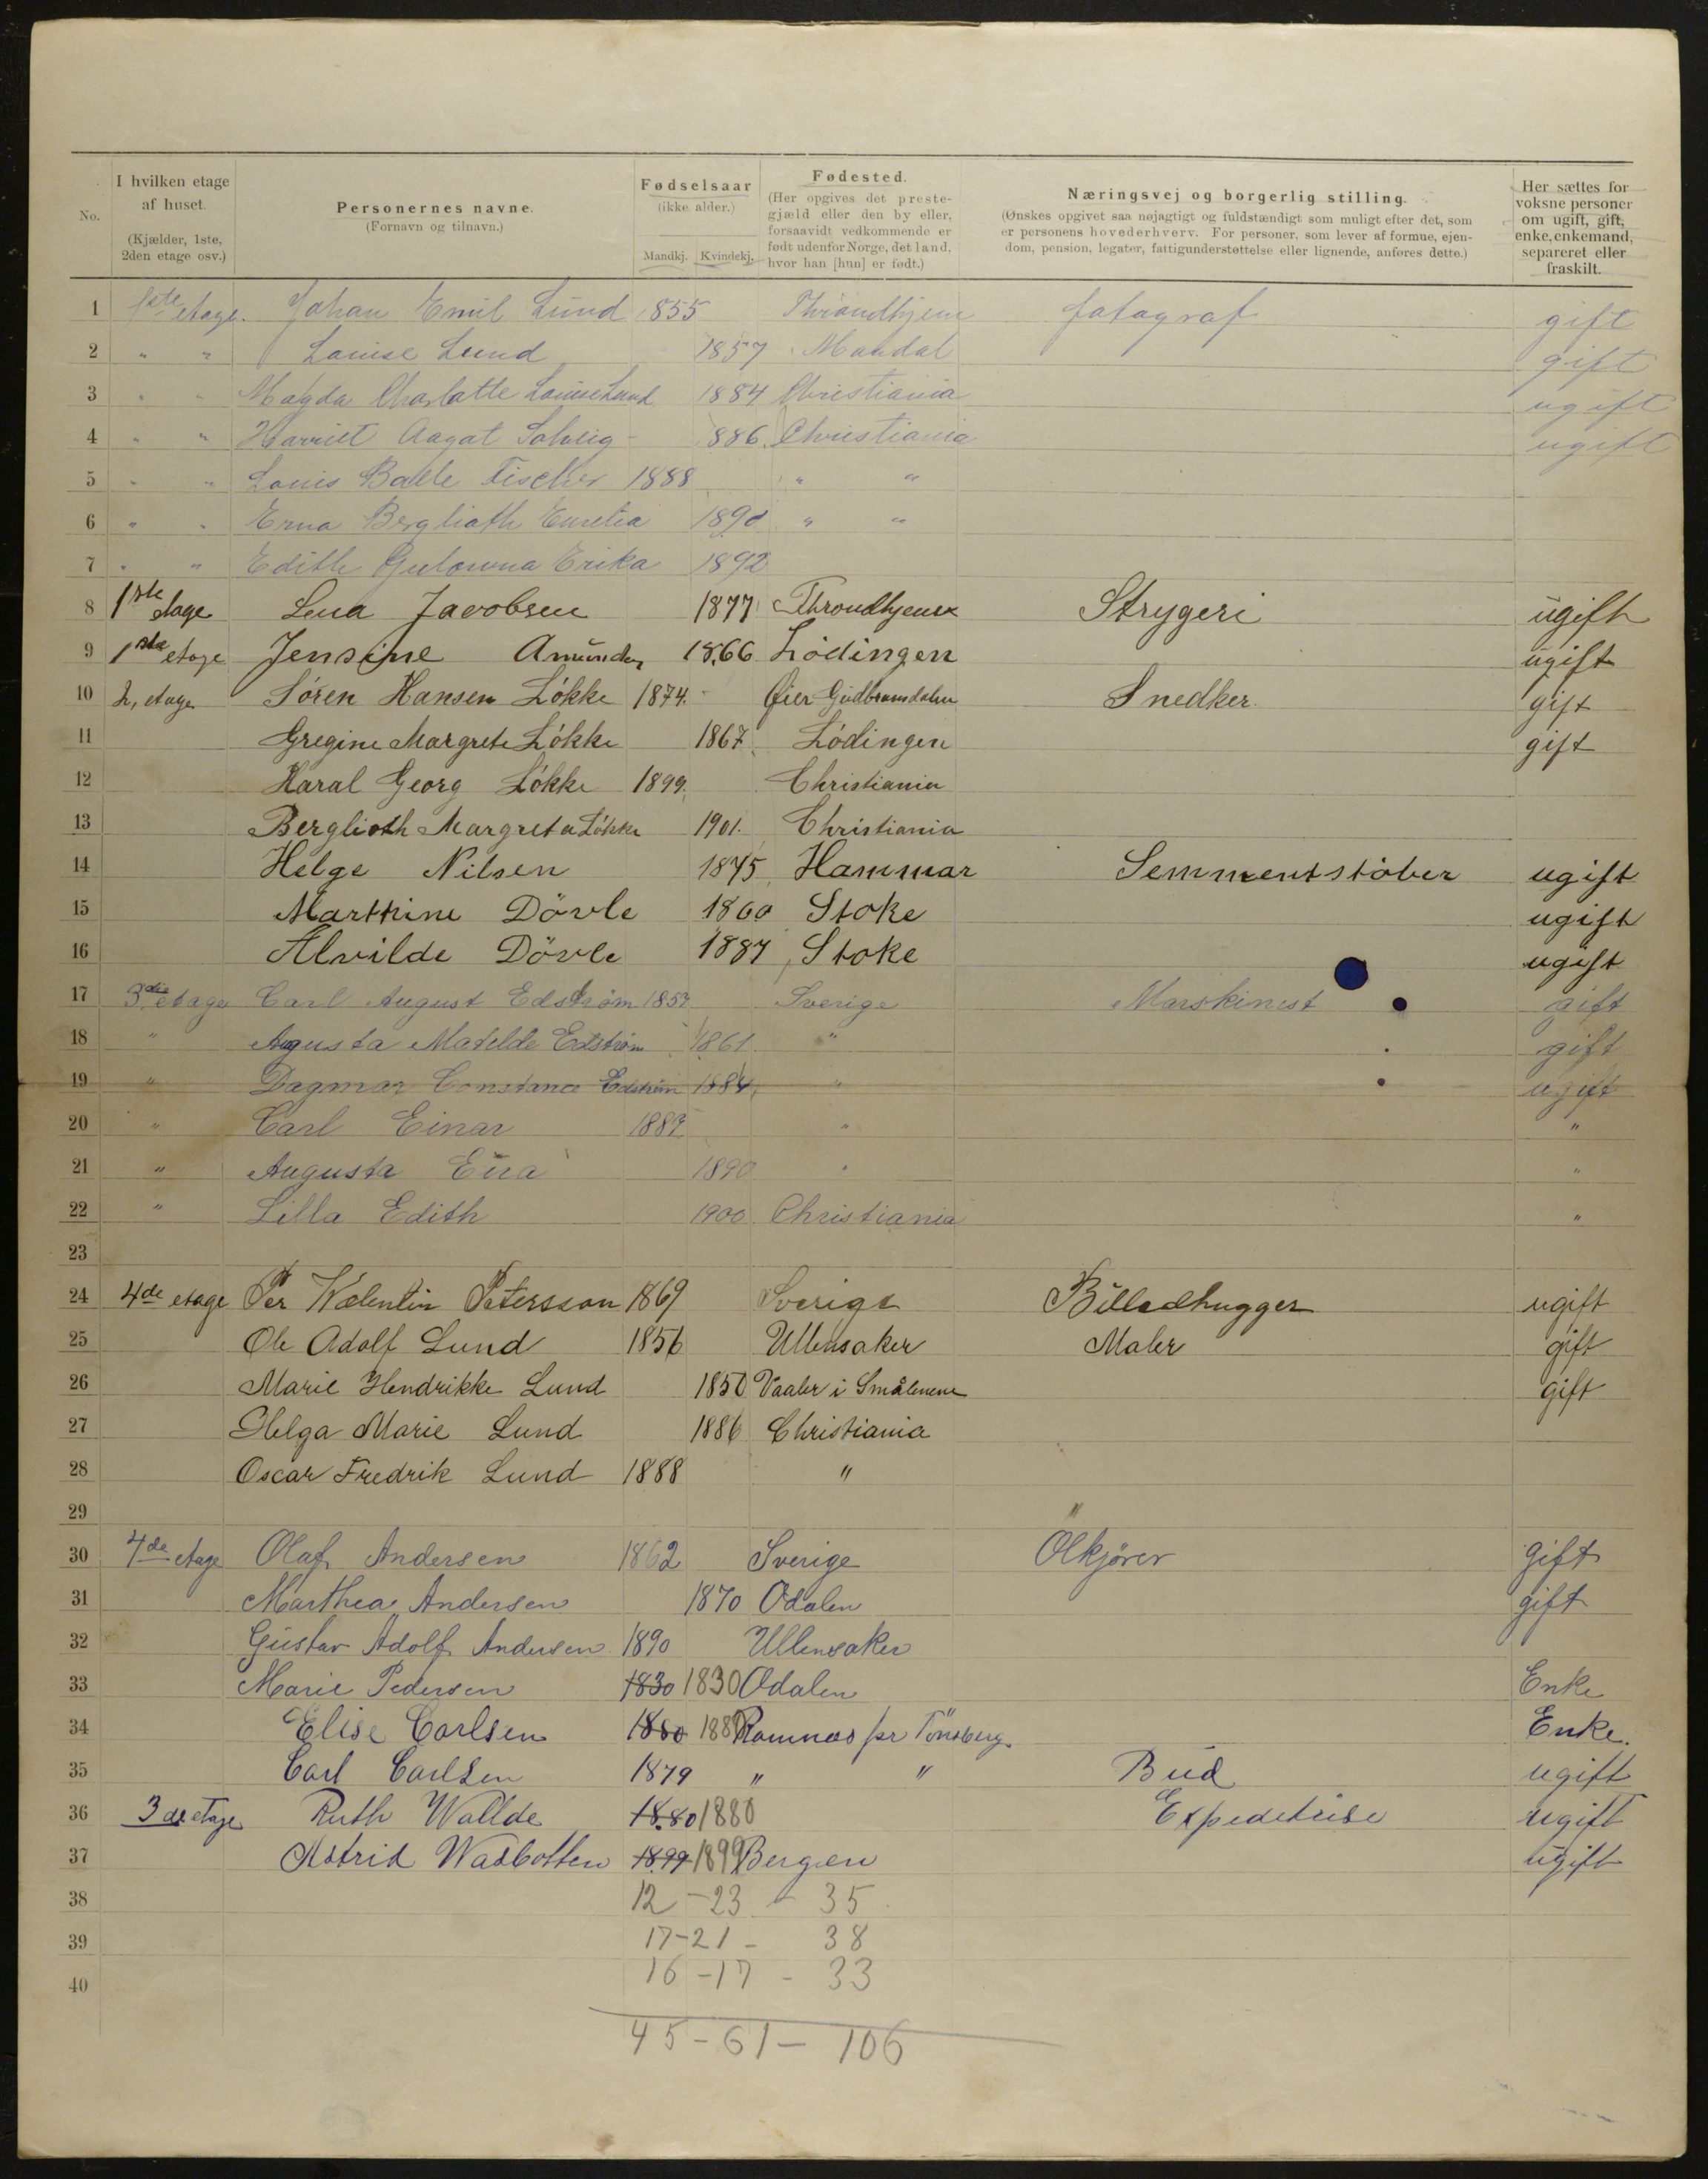 No.
I hvilken etage af huset.
(Kjælder, 1ste, 2den etage osv.)
Personernes navne.
(Fornavn og tilnavn.)
Fødselsaar
(ikke alder.)
Mandkj. Kvindekj.
Fødested.
(Her opgives det preste-
gjæld eller den by eller,
forsaavidt vedkommende er
født udenfor Norge, det land,
hvor han [hun] er født.)
Næringsvej og borgerlig stilling.
(Ønskes opgivet saa nøjagtigt og fuldstændigt som muligt efter det, som
er personens hovederhverv. For personer, som lever af formue, ejen-
dom, pension, legater, fattigunderstøttelse eller lignende, anføres dette.)
Her sættes for
voksne personer
om ugift, gift,
enke, enkemand,
separeret eller
fraskilt.
1 1ste etage. Johan Emil Lund 1855 Throndhjem fotograf gift
2 " " Louise Lund 1857 Mandal gift
3 " " Magda Charlotte Louise Lund 1884 Christiania ugift
4 " " Harriet Aagot Solveig - 1886. Christiania ugift
5 " " Louis Balle Fischer 1888 " "
6 " " Erna Bergliath 1890 " "
7 " " Edith Erika 1892
8 1ste etage Lena Jacobsen 1877 Throndhjem Strygeri ugift
9 1ste etage Jensine Amunds 1866 Lödingen ugift
10 2, etage Sören Hansen Lökke 1874. Øier Gudbransdalen Snedker. gift
11 Gregine Margrete Lökke 1867 Lödingen gift
12 Haral Georg Lökke 1899. Christiania
13 Berglioth Margreta Lökke 1901. Christiania
14 Helge Nilsen 1875 Hammar Semmentstöber ugift
15 Marthine Dövle 1860 Stoke ugift
16 Alvilde Dövle 1887 Stoke ugift
17 3die etage Carl August Edström 1857 Sverige Marskinist gift
18 " Augusta Matelde Edström 1861 " gift
19 " Dagmar Constance Edström 1884, " ugift
20 " Carl Einar 1887 " "
21 " Augusta 1890 " "
22 " Lilla Edith 1900 Christiania "
23
24 4de etage Per Walentin Petersson 1869 Sverige Billedhugger ugift
25 Ole Adolf Lund 1856 Ullensaker Maler gift
26 Marie Hendrikke Lund 1850 Vaaler i Smålenene gift
27 Helga Marie Lund 1886 Christiania
28 Oscar Fredrik Lund 1888 "
29
30 4de etage Olaf Andersen 1862 Sverige Ölkjörer gift
31 Marthea Andersen 1870 Odalen gift
32 Gustav Adolf Andersen 1890 Ullensaker
33 Marie Pedersen 1830 1830 Odalen Enke
34 Elise Carlsen 1880 1880 Ramnæs pr Tönsberg. Enke.
35 Carl Carlsen 1879 " " Bud ugift
36 3de etage Ruth Wallde 1880 1880 Expeditrise ugift
37 Astrid Wasbotten 1899 1899 Bergen ugift
38 12 - 23 - 35
39 17-21 - 38
40 16 -17 - 33
45 - 61 - 106